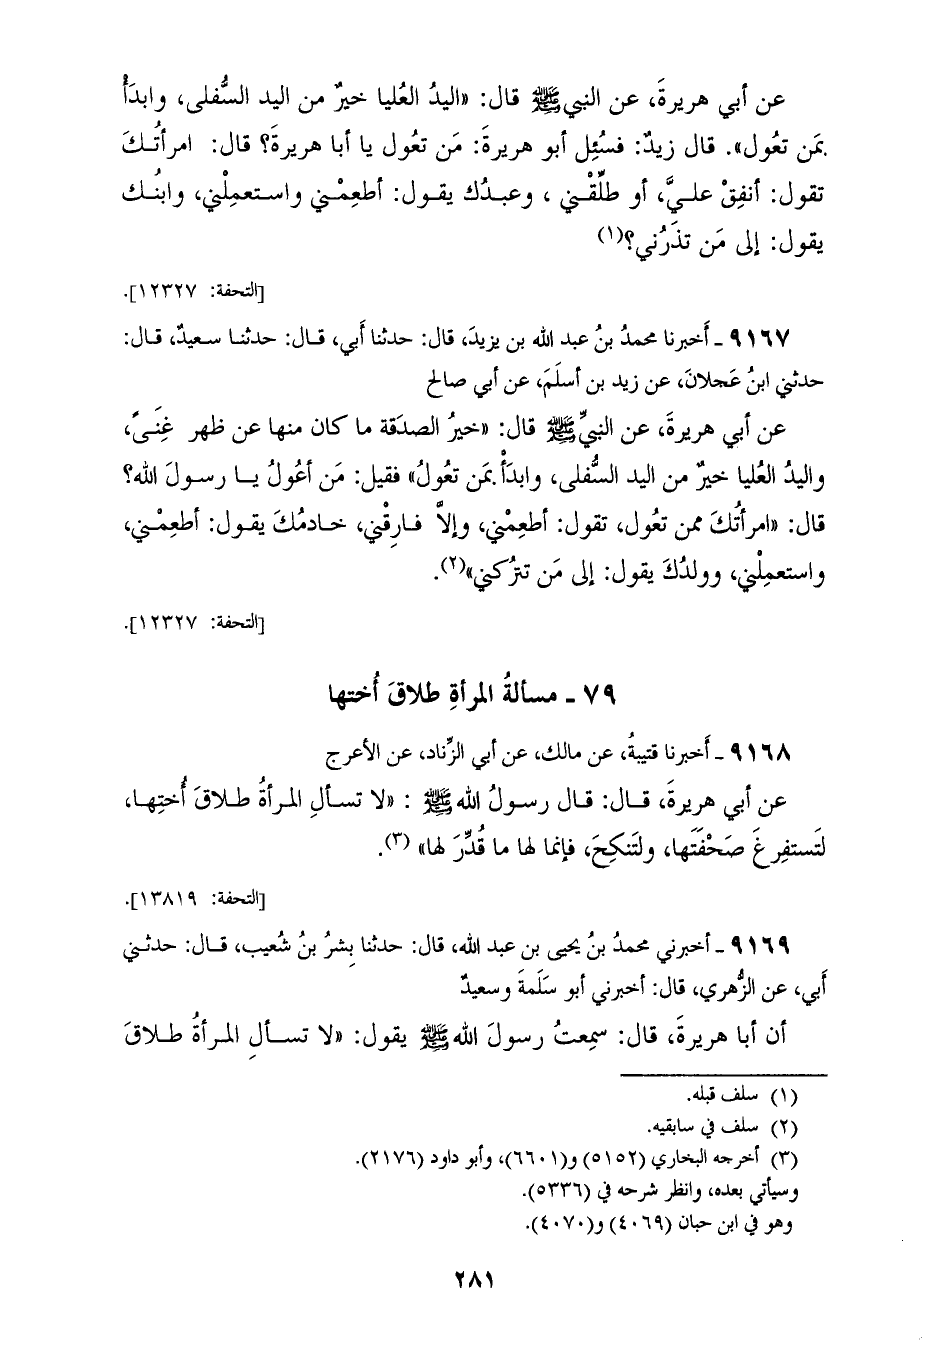 عن أبي هريرةَ، عن النبيﷺ قال: «اليدُ العُليا خيرٌ من اليد السُّفلى، وابدَأْ
بمَن تعُول». قال زيدٌ: فسُئِل أبو هريرةَ: مَن تعُول يا أبا هريرةَ؟ قال: امرأتُـكَ
تقول: أنفِقْ علـيَّ، أو طلِّقْـني ، وعبـدُك يقـول: أطعِمْـني واسـتعمِلْني، وابنُـك
يقول: إلى مَن تذَرُني؟(١)
[التحفة: ١٢٣٢٧].
٩١٦٧ ـ أَخبرنا محمدُ بنُ عبد الله بن يزيدَ، قال: حدثنا أَبي، قـال: حدثنـا سـعيدٌ، قـال:
حدثني ابنُ عَجلانَ، عن زيد بن أسلَمَ، عن أبي صالح
عن أبي هريرةَ، عن النبيِّﷺ قال: «خيرُ الصدَقة ما كان منها عن ظهر غِنَـىً،
واليدُ العُليا خيرٌ من اليد السُّفلى، وابدَأْ بمَن تعُولُ» فقيل: مَن أعُولُ يـا رسـولَ الله؟
قال: «امرأتُكَ ممن تعُول، تقول: أطعِمْني، وإلاَّ فـارِقْني، خـادمُكَ يقـول: أطعِمْـني،
واستعمِلْني، وولدُكَ يقول: إلى مَن تترُكني»(٢).
[التحفة: ١٢٣٢٧].
٧٩ ـ مسألةُ المرأةِ طلاقَ أُختها
٩١٦٨ ـ أَخبرنا قتيبةُ، عن مالك، عن أبي الزِّناد، عن الأعرج
عن أبي هريرةَ، قـال: قـال رسـولُ اللهﷺ : «لا تسـألِ المـرأةُ طـلاقَ أُختِهـا،
لَتَستفرِغَ صَحْفَتَها، ولتَنكِحَ، فإنما لها ما قُدِّرَ لها» (٣).
[التحفة: ١٣٨١٩].
٩١٦٩ ـ أخبرني محمدُ بنُ يحيى بن عبد الله، قال: حدثنا بِشرُ بنُ شُعيب، قـال: حدثـني
أَبي، عن الزُّهري، قال: أخبرني أبو سَلَمةَ وسعيدٌ
أن أبا هريرةَ، قال: سمِعتُ رسولَ اللهﷺ يقول: «لا تسـألِ المـرأةُ طـلاقَ
(١) سلف قبله.
(٢) سلف في سابقيه.
(٣) أخرجه البخاري (٥١٥٢) و(٦٦٠١)، وأبو داود (٢١٧٦).
وسيأتي بعده، وانظر شرحه في (٥٣٣٦).
وهو في ابن حبان (٤٠٦٩) و(٤٠٧٠).
٢٨١